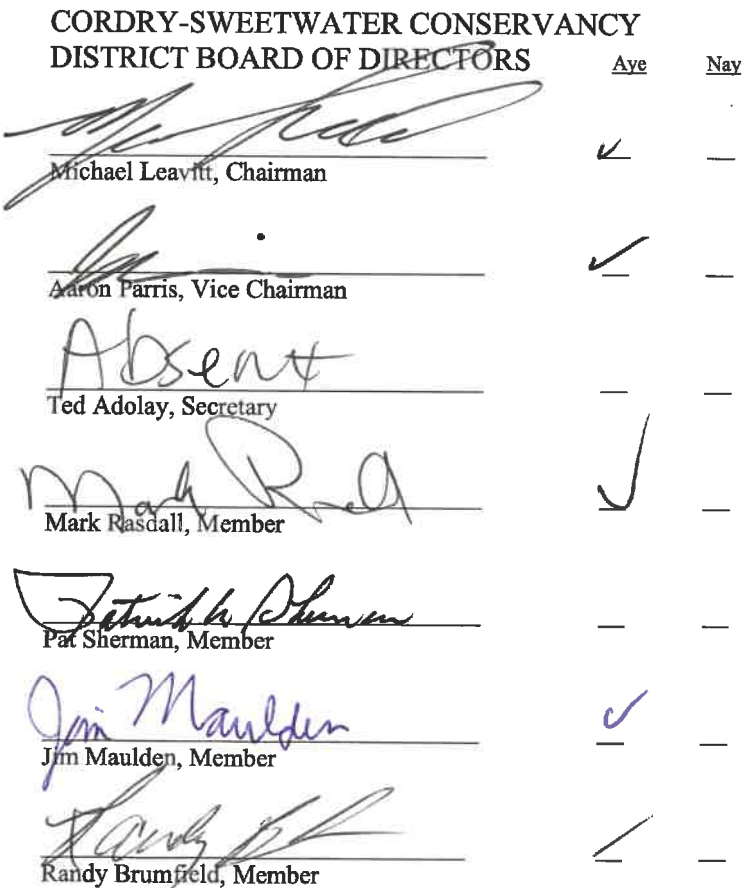 CORDRY-SWEETWATER CONSERVANCY
DISTRICT BOARD OF DIRECTORS Aye Nay
Michael Leavitt, Chairman
Aaron Parris, Vice Chairman
Absent
Ted Adolay, Secretary
Mark Rasdall, Member
Patrick W Sherman
Pat Sherman, Member
Jim Maulden
Jim Maulden, Member
Randy
Randy Brumfield, Member